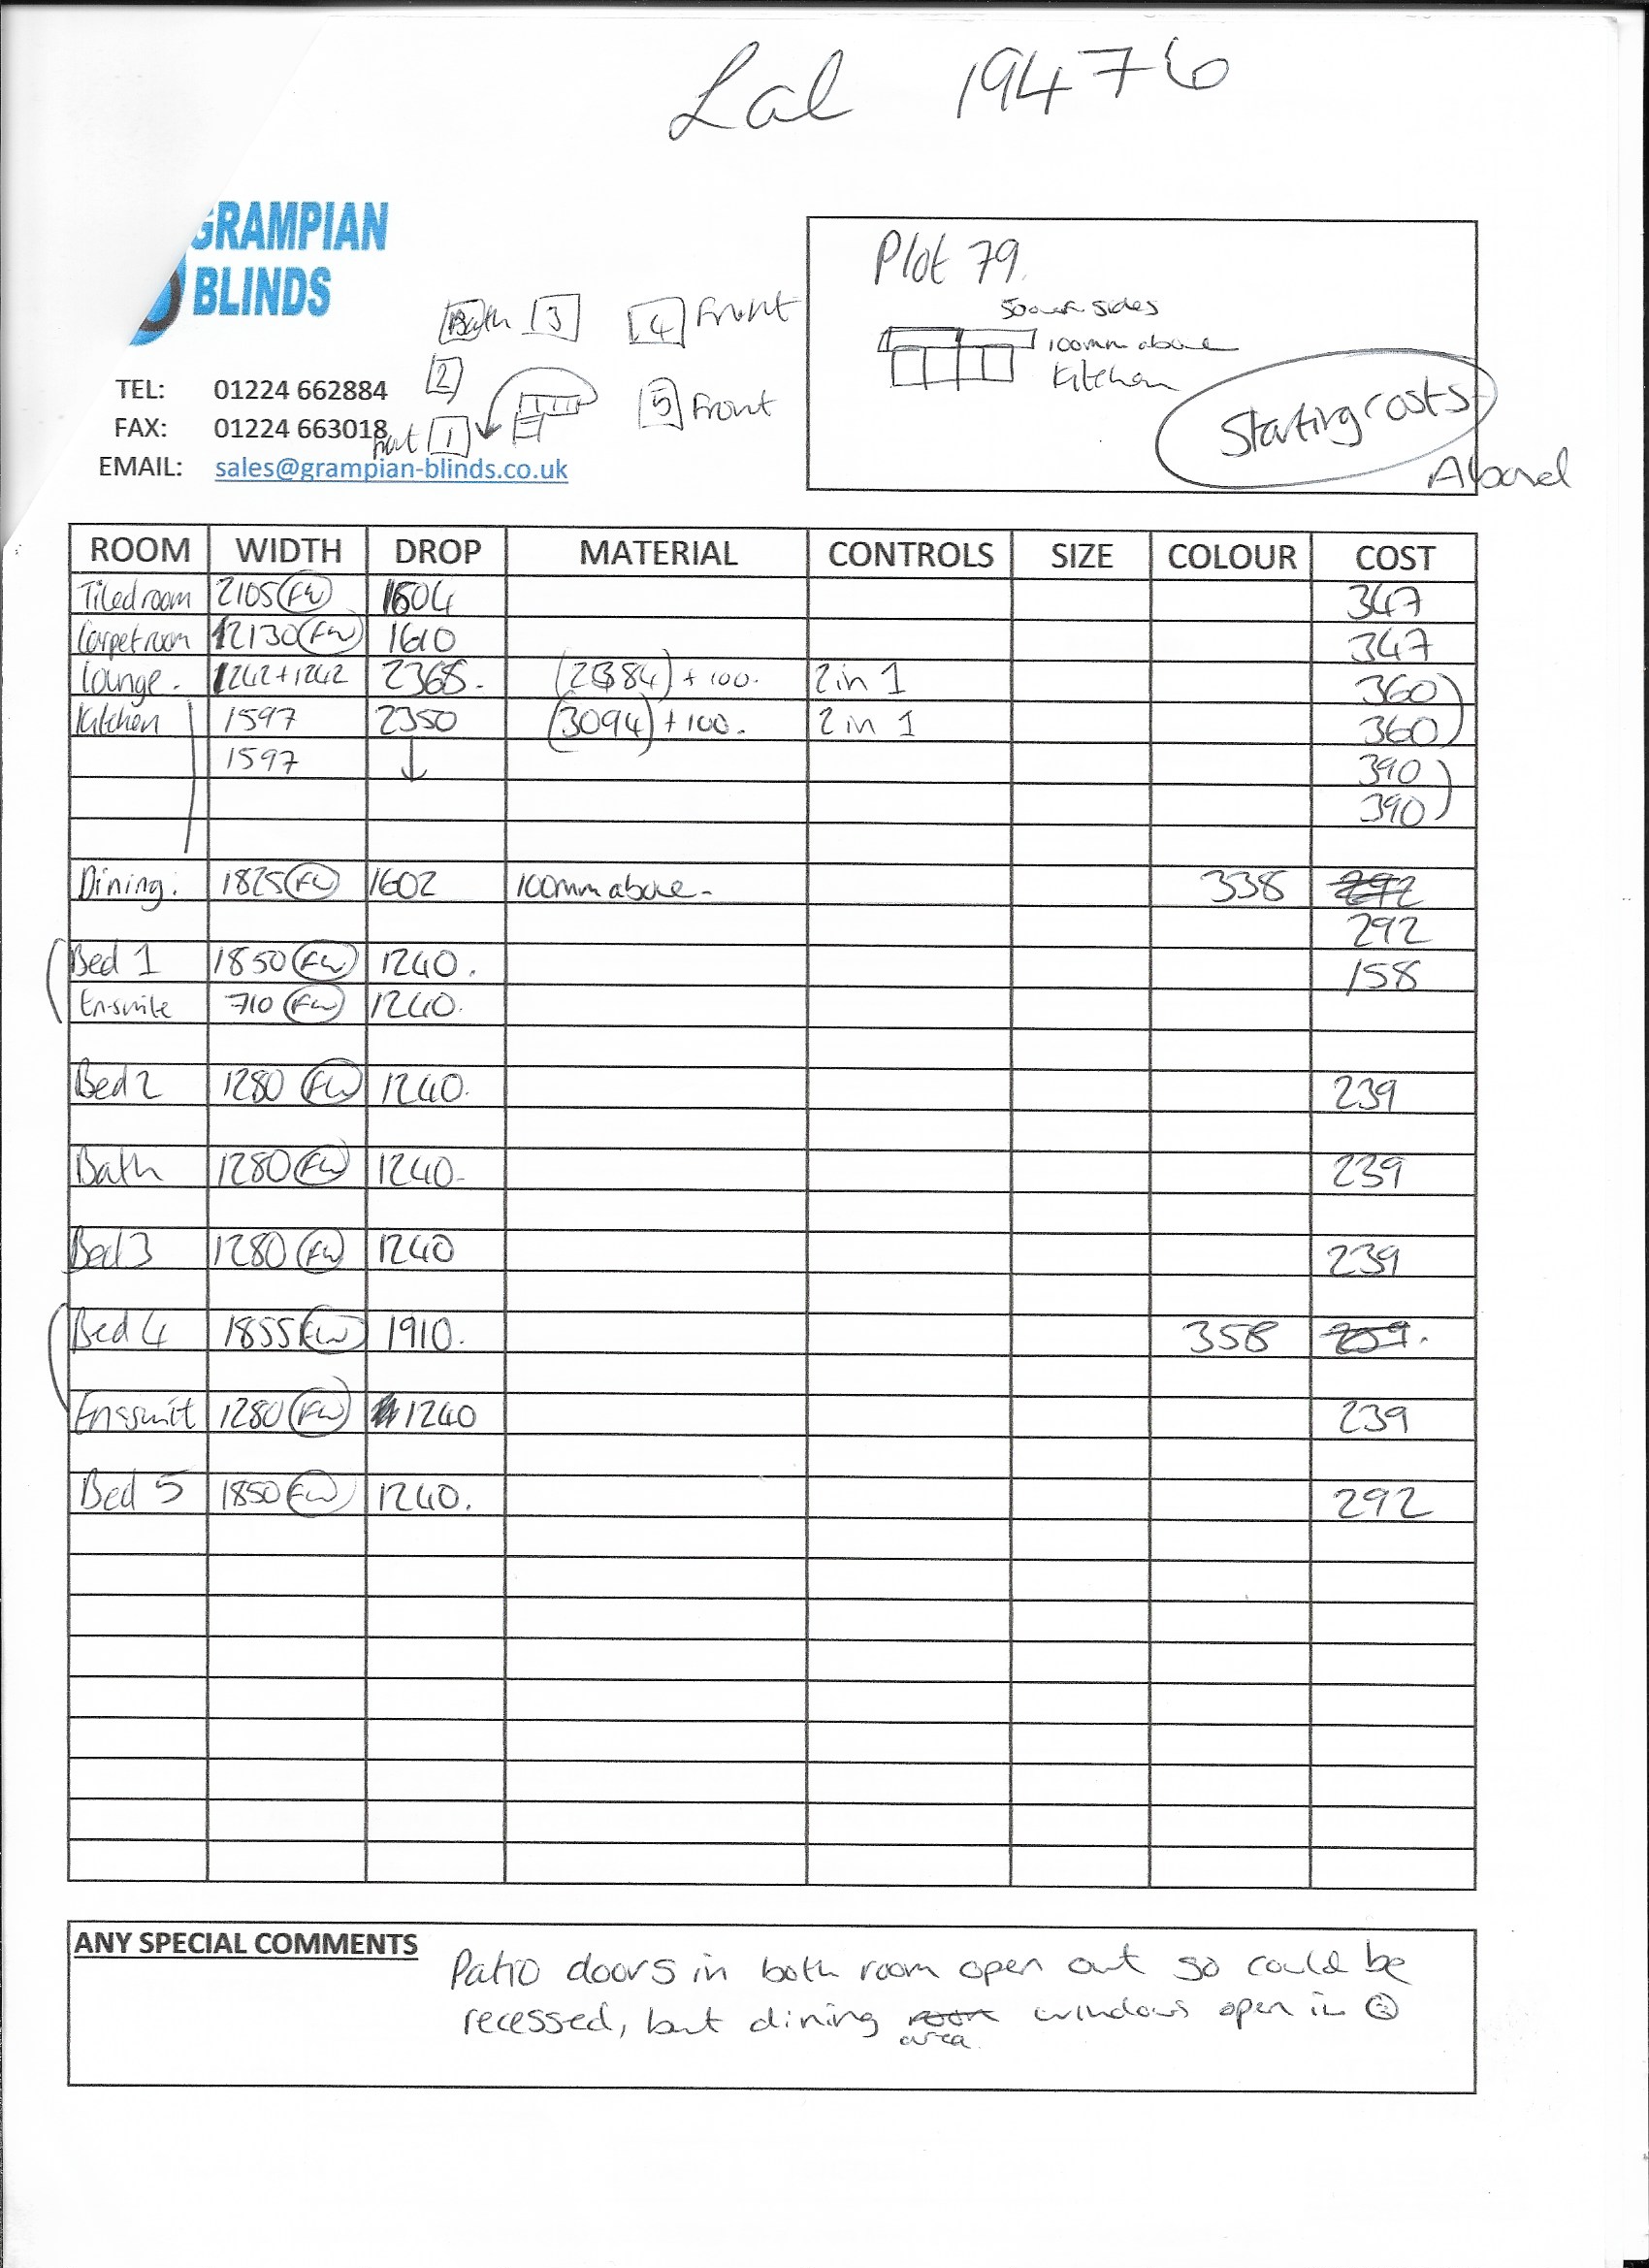 Lal 19476
GRAMPIAN
BLINDS
TEL: 01224 662884
FAX: 01224 663018
EMAIL: sales@grampian-blinds.co.uk
Bath 3 4 Front
2
1 5 Front
Plot 79.
50mm sides
100mm above
Kitchen
Starting costs
ROOM WIDTH DROP MATERIAL CONTROLS SIZE COLOUR COST
Tiled room 2105 FW 1604 347
Carpet room 2130 FW 1610 347
Lounge. 1242+1242 2368. (2384) + 100. 2 in 1 360)
Kitchen 1597 2350 (3094) + 100. 2 in 1 360)
1597 ↓ 390)
390)
Dining. 1825 FW 1602 100mm above- 338 292
292
Bed 1 1850 FW 1240. 158
Ensuite 710 FW 1240.
Bed 2 1280 FW 1240. 239
Bath 1280 FW 1240- 239
Bed 3 1280 FW 1240 239
Bed 4 1855 FW 1910. 358 259.
Enssuit 1280 FW 1240 239
Bed 5 1850 FW 1240. 292
ANY SPECIAL COMMENTS
Patio doors in both room open out so could be
recessed, but dining room windows open in
area